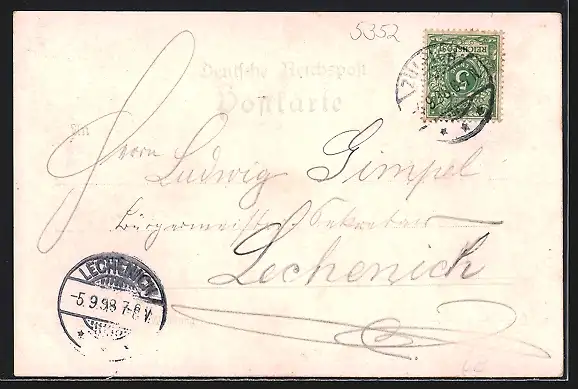 5352
REICHSPOST
5
Deutsche Reichspost
Postkarte
An
Herrn
Ludwig Gimpel
Bürgermeister Sekretär
Lechenich
LECHENICH
-5.9.98 7-8 V.